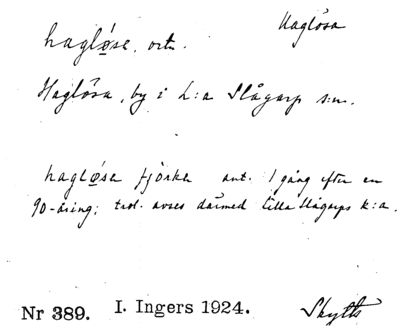 Haglösa
hagløse, ortn.
Haglösa, by i L:a Slågarp s:n.
hagløse tjörka ant. 1 gång efter en
90-åring; trol. avses därmed Lilla Slågarps k:a.
Nr 389. I. Ingers 1924. Skytts